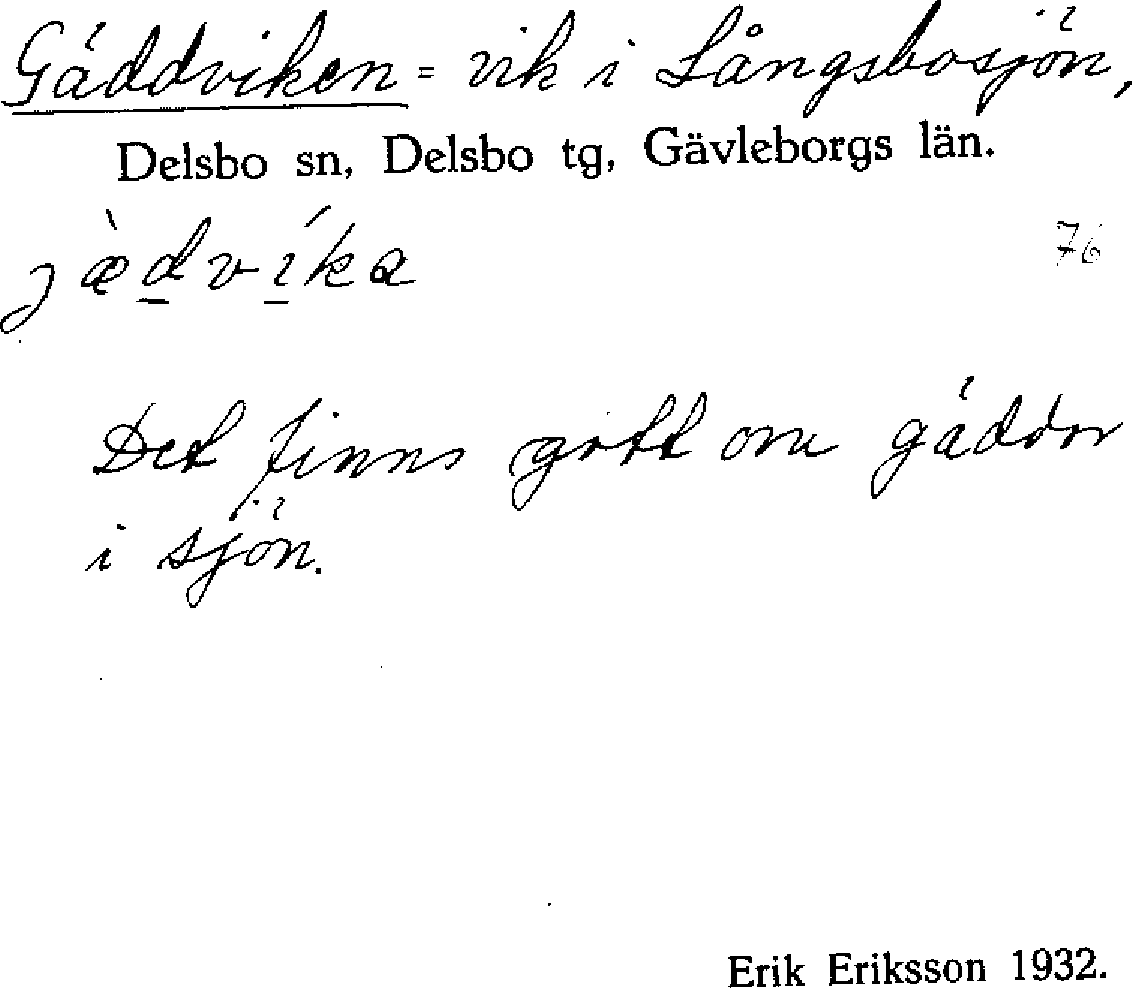 Gäddviken = vik i Långsbosjön,
Delsbo sn, Delsbo tg, Gävleborgs län.
jæ̀dvíka
76
Det finns gott om gäddor
i sjön.
Erik Eriksson 1932.